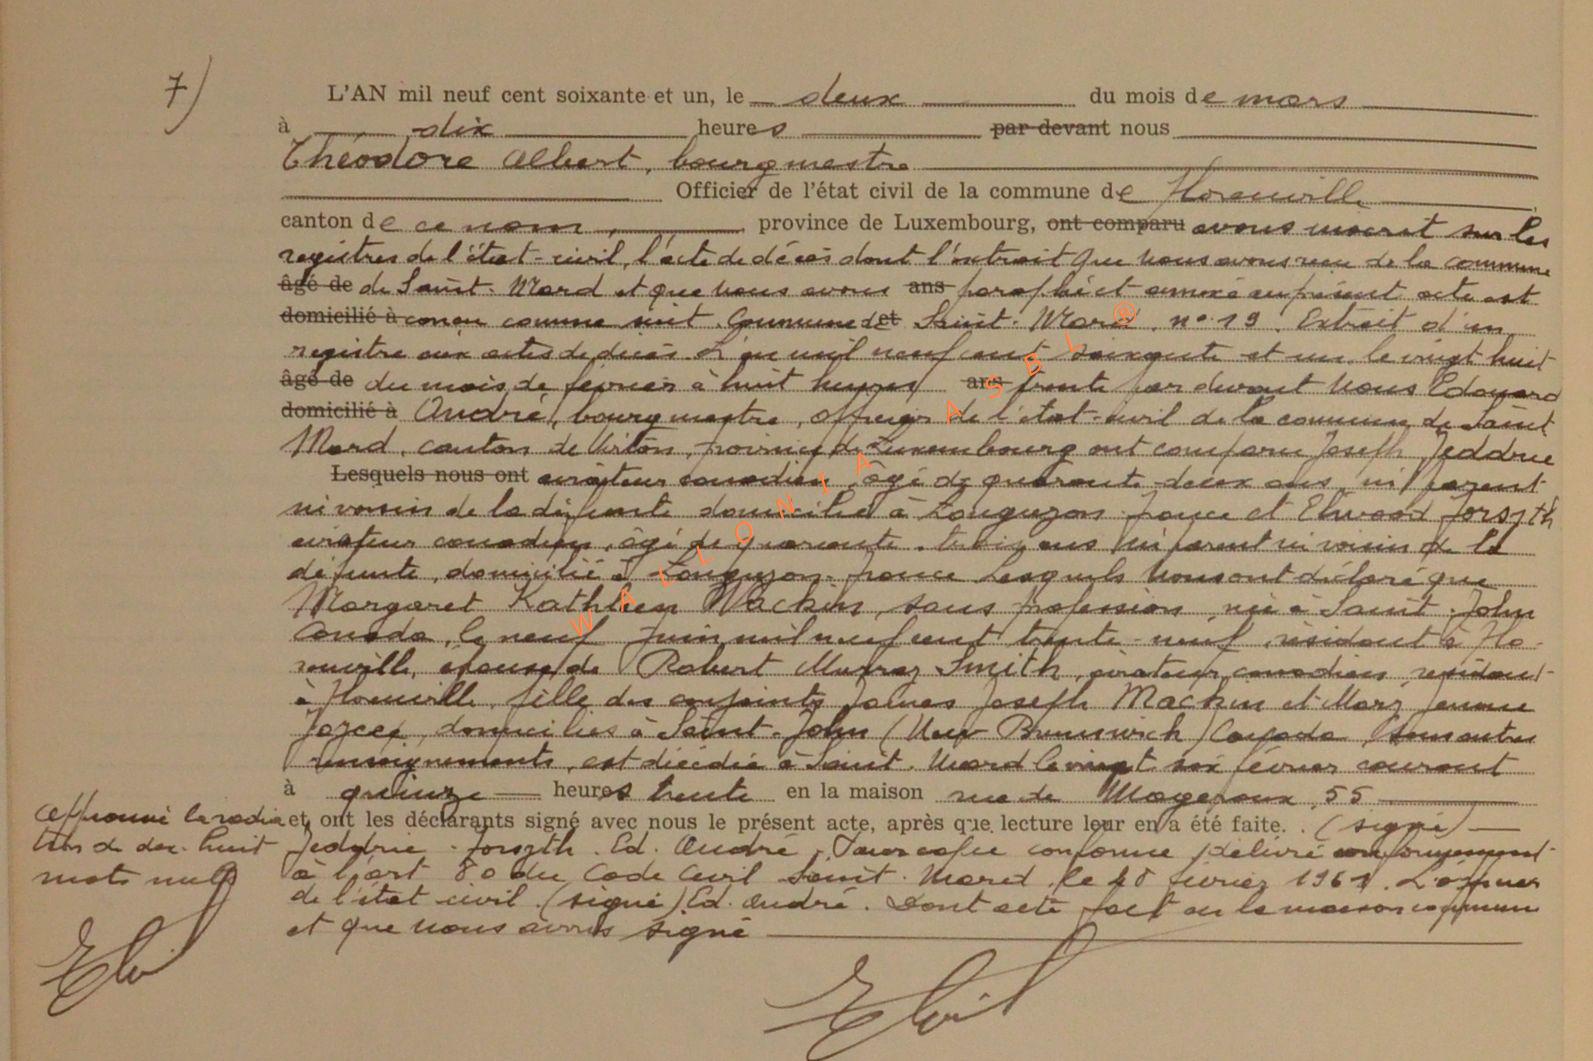 7)
L'AN mil neuf cent soixante et un, le deux du mois de mars
à dix heures par devant nous
Théodore Albert, bourgmestre
Officier de l'état civil de la commune de Florenville
canton de ce nom, province de Luxembourg, ont comparu avons inscrit sur les
registres de l'état-civil, l'acte de décès dont l'extrait que nous avons reçu de la commune
âgé de de Saint-Mard et que nous avons ans paraphé et annexé au présent acte est
domicilié à conçu comme suit. Commune de et Saint-Mard. n° 19. Extrait d'un
registre aux actes de décès L'an mil neuf cent soixante et un le vingt huit
âgé de du mois de février à huit heures ans trente par devant nous Edouard
domicilié à André, bourgmestre, officier de l'état-civil de la commune de Saint
Mard, canton de Virton, province de Luxembourg ont comparu Joseph Jeddrie
Lesquels nous ont aviateur canadien, âgé de quarante-deux ans, ni parent
ni voisin de la défunte domicilié à Longuyon France et Elwood Forsyth
aviateur canadien, âgé de quarante-trois ans ni parent ni voisin de la
défunte, domicilié à Longuyon-France Lesquels nous ont déclaré que
Margaret Kathleen Mackin, sans profession, née à Saint-John
Canada, le neuf juin mil neuf cent trente-neuf, résidant à Flo-
renville, épouse de Robert Murray Smith, aviateur canadien, résidant
à Florenville, fille des conjoints James Joseph Mackin et Mary
domiciliés à Saint-John (New Brunswick) Canada, sans autres
renseignements, est décédée à Saint-Mard le vingt six février courant
à quinze heures trente en la maison rue de Mageroux, 55
et, ont les déclarants signé avec nous le présent acte, après que lecture leur en a été faite. (signé)
Jeddrie - Forsyth. Ed. André. Pour copie conforme délivré conformément
à l'art 80 du Code Civil Saint-Mard, le 28 février 1961. L'officier
de l'état civil (signé) Ed. André. Dont acte fait en la maison commune
et que nous avons signé
Approuvé la radia
tion de dix-huit
mots nuls
WALLONIA ASBL®